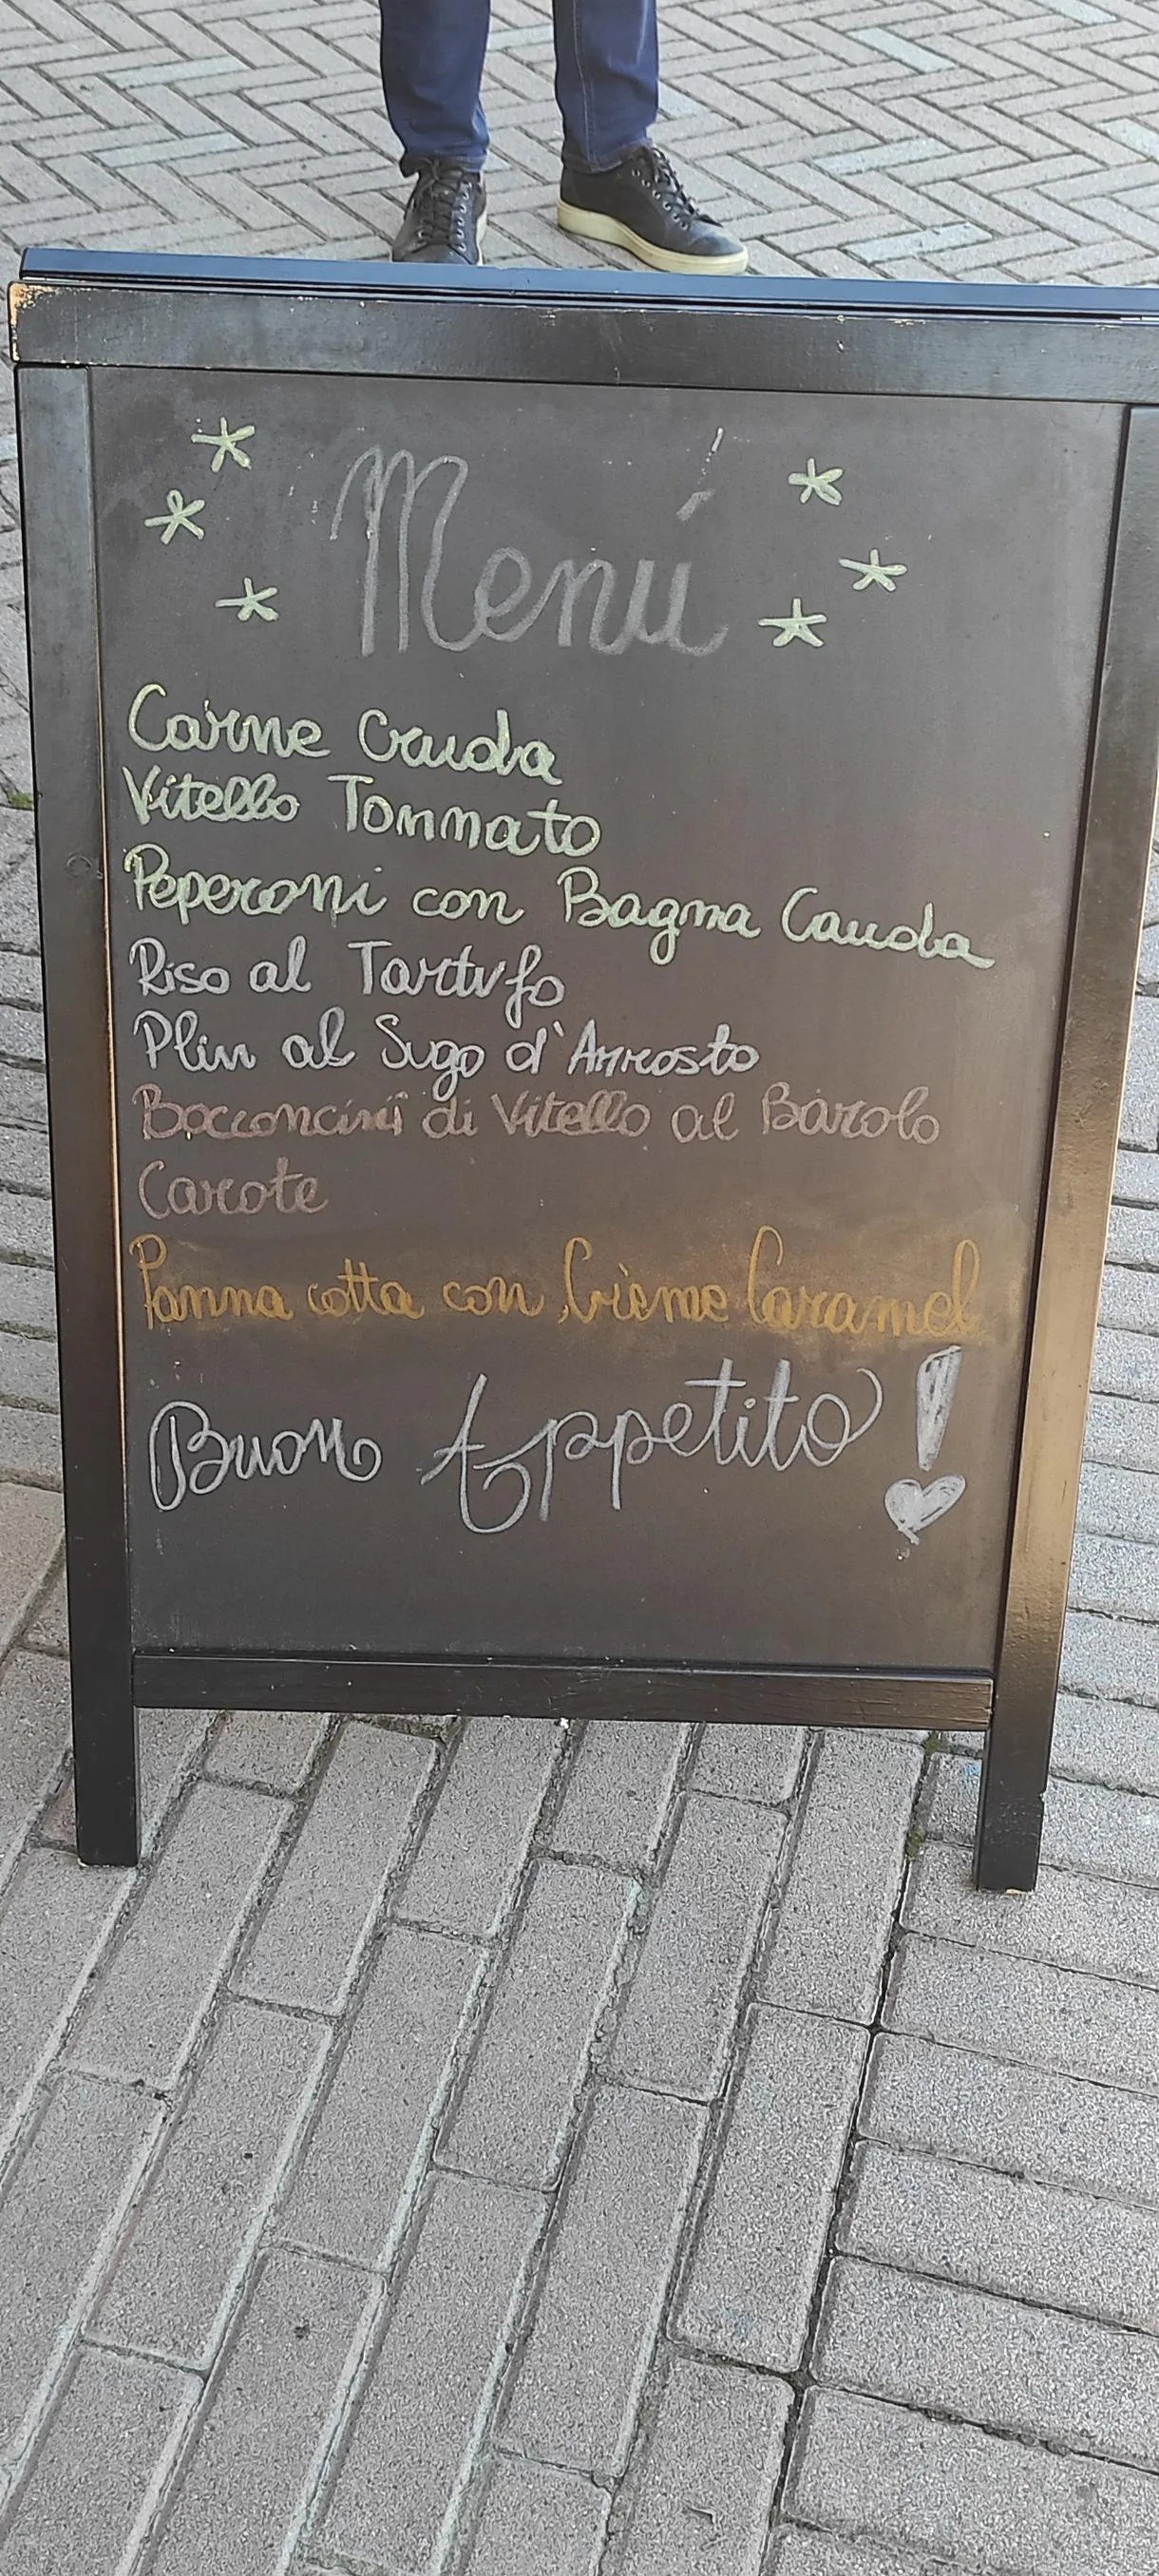 Menú
Carne Cruda
Vitello Tonnato
Peperoni con Bagna Cauda
Riso al Tartufo
Plin al Sugo d'Arrosto
Bocconcini di Vitello al Barolo
Carote
Panna cotta con Crème Caramel
Buon Appetito!